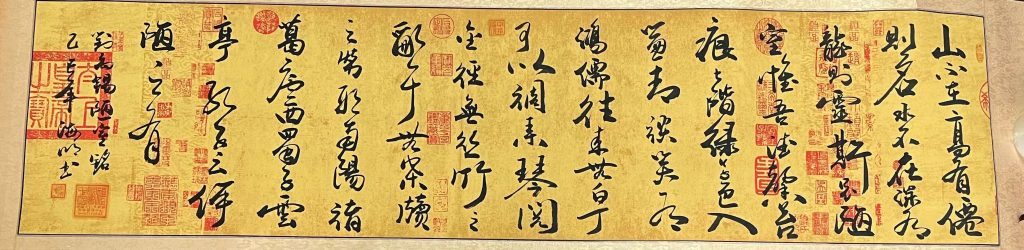 山不在高有僊
則名水不在深有
龍則靈斯是陋
室惟吾德馨苔
痕上階緑草色入
簾青談笑有
鴻儒往来無白丁
可以調素琴閱
金經無絲竹之
亂耳無案牘
之勞形南陽諸
葛廬西蜀子雲
亭孔子云何
陋之有
劉禹錫陋室銘
年海明书